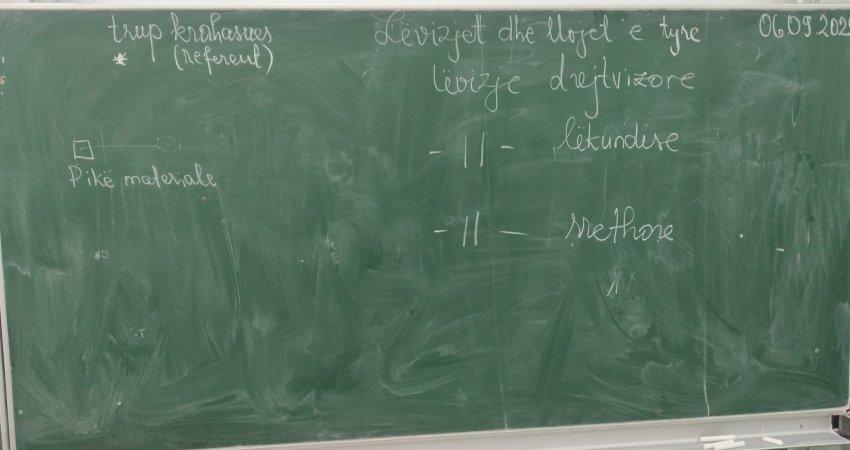 trup krahasues
* (referent)
Pikë materiale
Lëvizjet dhe llojet e tyre
06.09.202
lëvizje drejtvizore
- || - lëkundëse
- || - rrethore